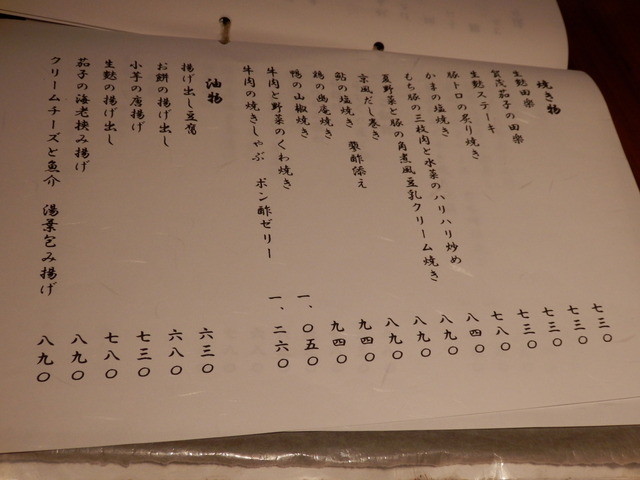 焼き物
生麩田楽 七三〇
賀茂茄子の田楽 七三〇
生麩ステーキ 七三〇
豚トロの炙り焼き 七三〇
かまの塩焼き 七八〇
もち豚の三枚肉と水菜のハリハリ炒め 八四〇
夏野菜と豚の角煮風豆乳クリーム焼き 八九〇
京風だし巻き 八九〇
鮎の塩焼き 蓼酢添え 八九〇
鶏の幽庵焼き 九四〇
鴨の山椒焼き 九四〇
牛肉と野菜のくわ焼き 一、〇五〇
牛肉の焼きしゃぶ ポン酢ゼリー 一、二六〇
油物
揚げ出し豆腐 六三〇
お餅の揚げ出し 六八〇
小芋の唐揚げ 七三〇
生麩の揚げ出し 七八〇
茄子の海老挟み揚げ 八九〇
クリームチーズと魚介 湯葉包み揚げ 八九〇